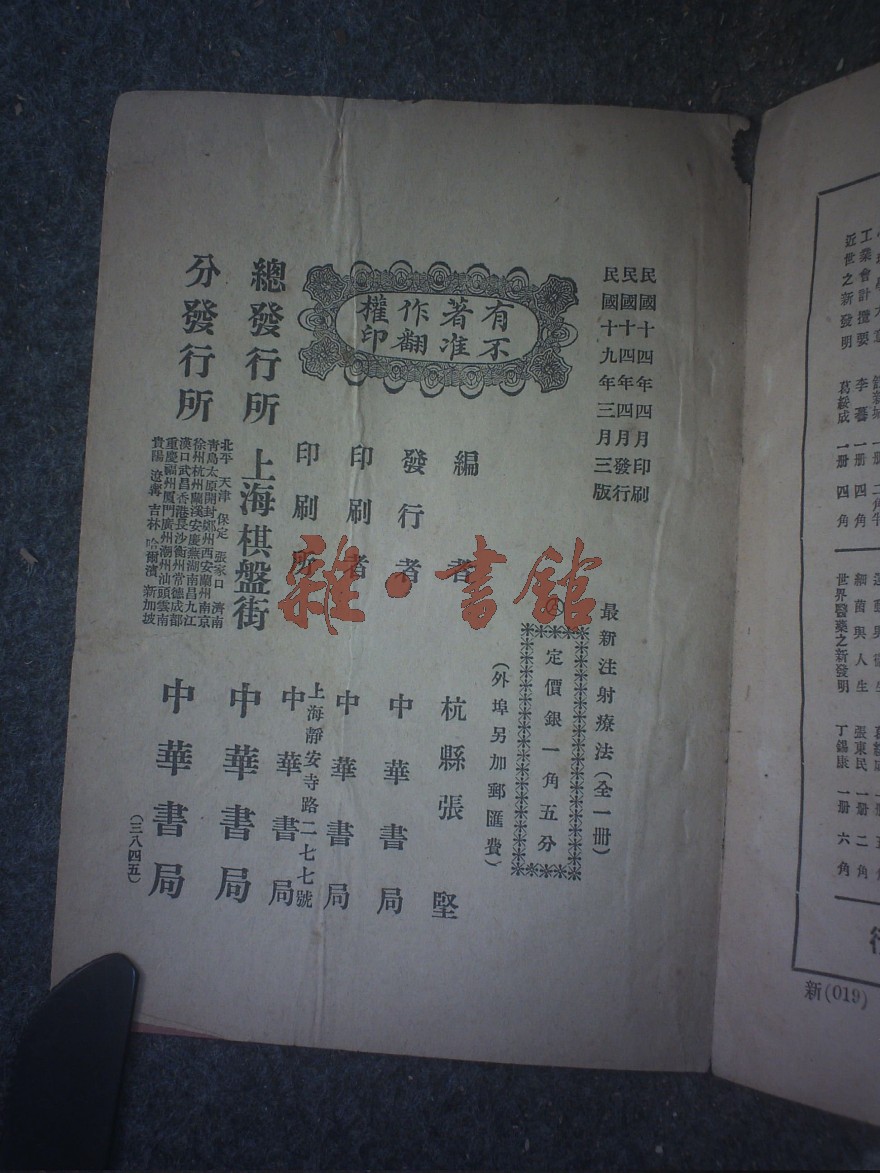 民國十四年四月印刷
民國十四年四月發行
民國十九年三月三版
有著作權
不准翻印
最新注射療法(全一冊)
定價銀一角五分
(外埠另加郵匯費)
編者 杭縣張堅
發行者 中華書局
印刷者 中華書局
印刷所 上海靜安寺路二七七號 中華書局
總發行所 上海棋盤街 中華書局
分發行所 中華書局
北平 天津 保定 張家口 濟南
青島太原開封鄭州西安蘭州南京
徐州杭州蘭溪安慶蕪湖南昌九江
漢口武昌香港長沙衡州常德成都
重慶福州厦門廣州潮州汕頭雲南
貴陽 遼寧 吉林 哈爾濱 新加坡
(三八四五)
雜·書館
工業會計攬要 李蕃 一册 四角
近世之新發明 葛綏成 一册 四角
細菌與人生 張東民 一册 二角
世界醫藥之新發明 丁錫康 一册 六角
新(019)